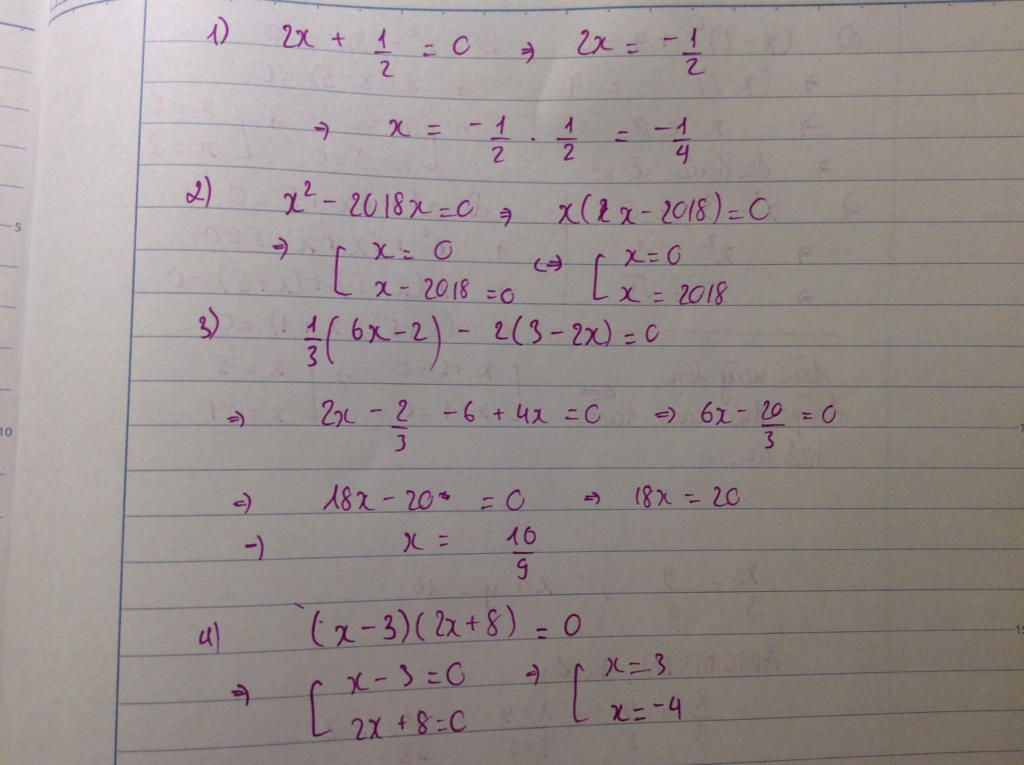 1) 2x + 1/2 = 0 ⇒ 2x = -1/2
⇒ x = -1/2 . 1/2 = -1/4
2) x² - 2018x = 0 ⇒ x(x - 2018) = 0
⇒ [ x = 0 ⇔ [ x = 0
x - 2018 = 0 x = 2018
3) 1/3(6x - 2) - 2(3 - 2x) = 0
⇒ 2x - 2/3 - 6 + 4x = 0 ⇒ 6x - 20/3 = 0
⇒ 18x - 20 = 0 ⇒ 18x = 20
⇒ x = 10/9
4) (x - 3)(2x + 8) = 0
⇒ [ x - 3 = 0 ⇒ [ x = 3
2x + 8 = 0 x = -4
5
10